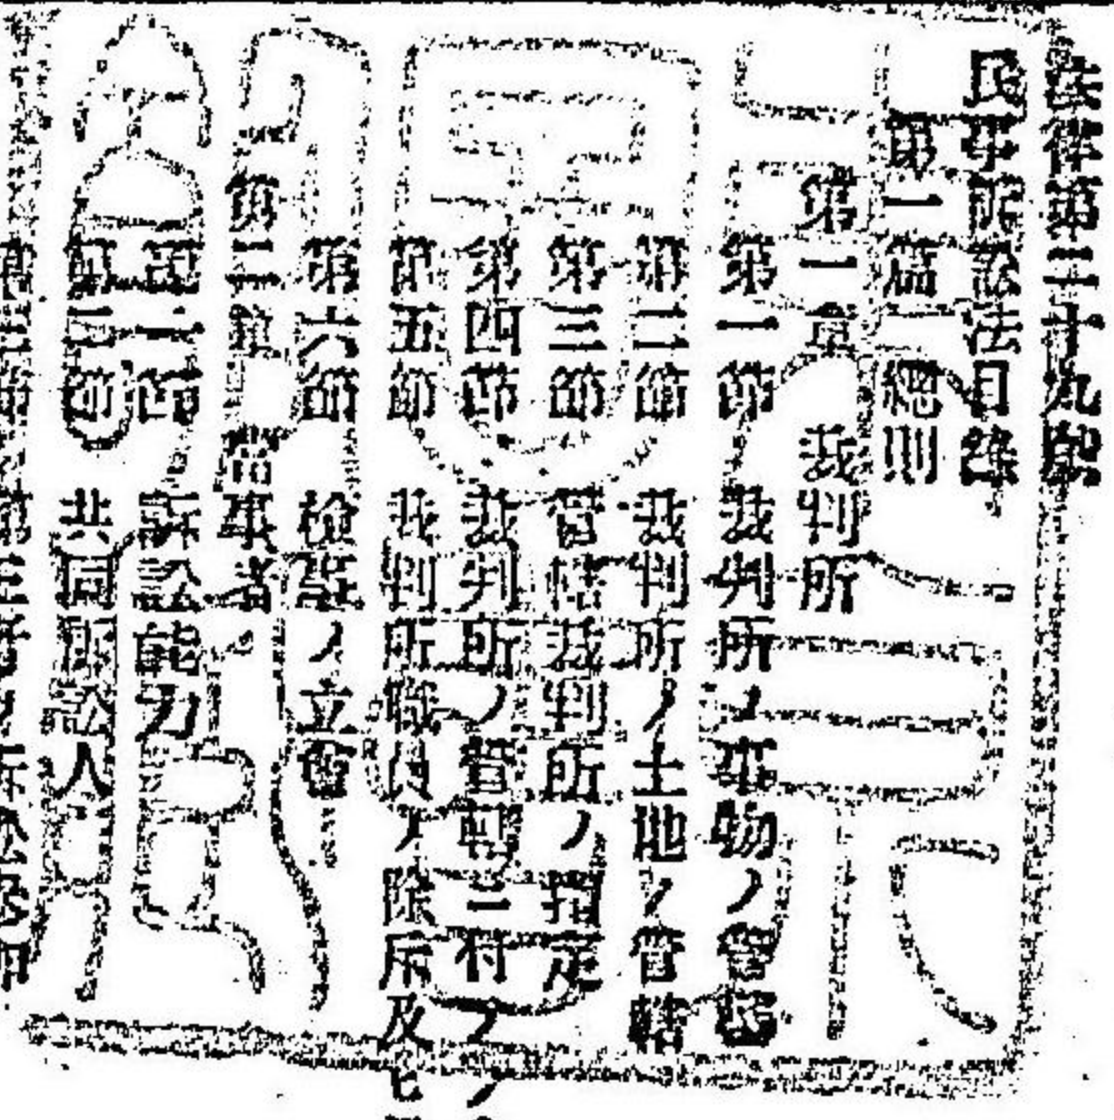 法律第二十九號
民事訴訟法目錄
第一篇 總則
第一章 裁判所
第一節 裁判所ノ事物ノ管轄
第二節 裁判所ノ土地ノ管轄
第三節 管轄裁判所ノ指定
第四節 裁判所ノ管轄ニ付テノ
第五節 裁判所職員ノ除斥及ヒ
第六節 檢事ノ立會
第二章 當事者
第一節 訴訟能力
第二節 共同訴訟人
第三節 第三者ノ訴訟參加